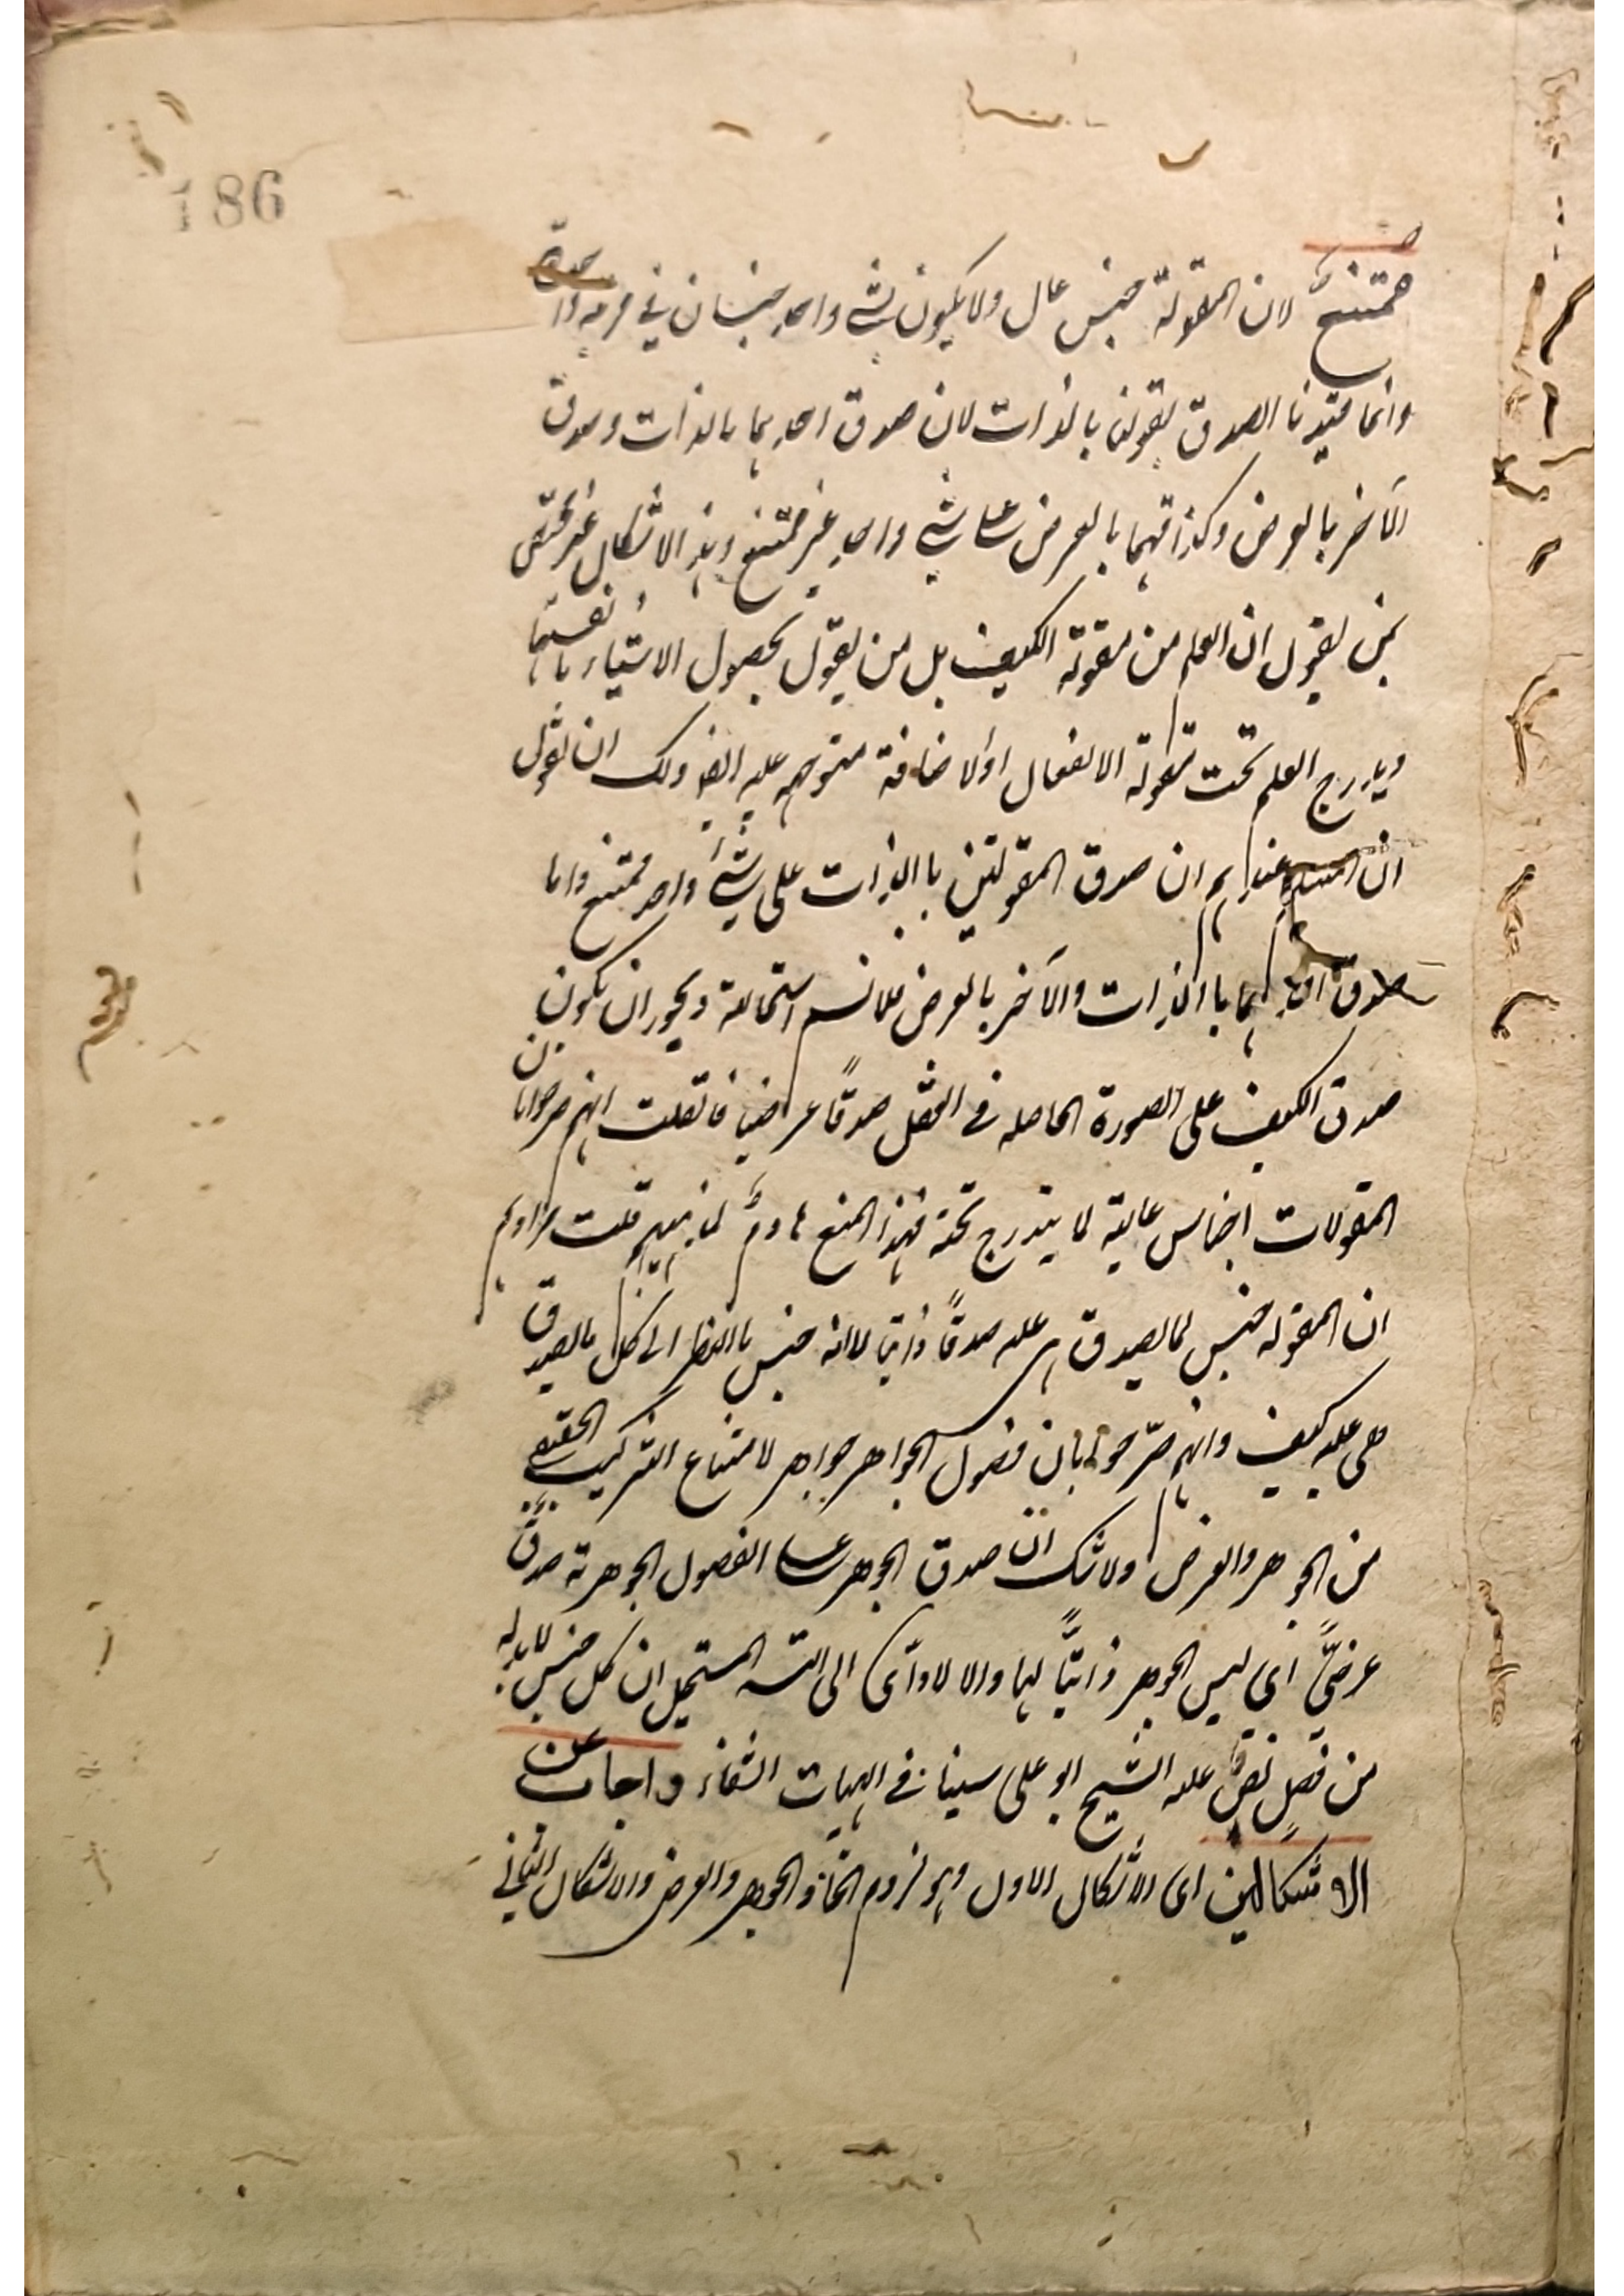 186
ممتنع لان المقولة جنس عال ولا يكون لشئ واحد جنسان في مرتبة واحدة
وانما قيدنا الصدق بقولنا بالذات لان صدق احديهما بالذات وصدق
الآخر بالعرض وكذا قهما بالعرض على شئ واحد غير ممتنع وهذا الاشكال غير مختص
بمن يقول ان العلم من مقولة الكيف بل من يقول بحصول الاشياء بانفسها
ويدرج العلم تحت مقولة الانفعال او الاضافة متوجه عليه ايضا ولك ان تقول
ان المسلم عندهم ان صدق المقولتين بالذات على شئ واحد ممتنع واما
صدق احديهما بالذات والآخر بالعرض فلا نسلم استحالته ويجوز ان يكون
صدق الكيف على الصورة الحاصلة في العقل صدقًا عرضيا فان قلت انهم صرحوا بان
المقولات اجناس عالية لما يندرج تحته فهذا المنع هادم لمذهبهم قلت مرادهم
ان المقولة جنس لما يصدق هي عليه صدقًا ذاتيا لا انه جنس بالنظر الى كل ما يصدق
هي عليه كيف وانهم صرّحوا بان فصول الجواهر جواهر لامتناع التركيب الحقيقي
من الجوهر والعرض ولا شك ان صدق الجوهر على الفصول الجوهرية صدق
عرضيّ اى ليس الجوهر ذاتيًّا لها والا لادّى الى التسـ المستحيل ان كل جنس لا بد له
من فصل نص عليه الشيخ ابو على سينا في الهيات الشفاء واجاب عن
الاشكالين اى الاشكال الاول وهو لزوم اتحاد الجوهر والعرض والاشكال الثاني